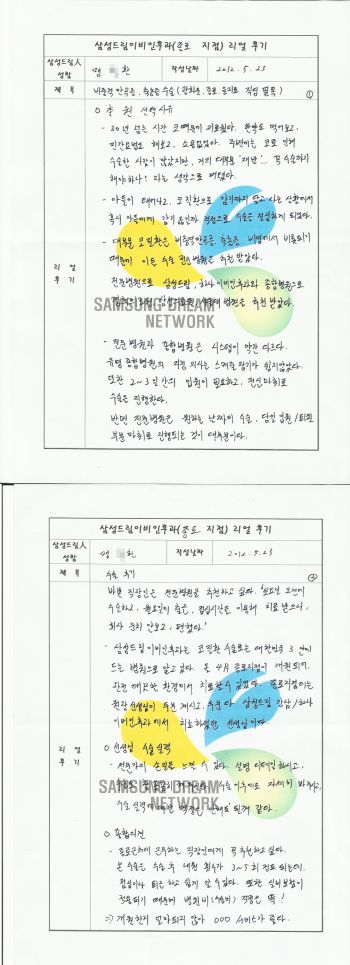 삼성드림이비인후과(종로 지점) 리얼 후기
삼성드림人
성함
명 환
작성날짜
2012. 5. 23
제 목
비중격만곡증, 축농증 수술 (광화문, 종로, 을지로 직장인 필독)
①
리 얼
후 기
○ 수원 선택사유
- 30년 넘는 시간 코때문에 괴로웠다. 한약도 먹어보고,
민간요법도 해보고, 소용없었다. 주변에는 코로 인해
수술한 사람이 많았지만, 거의 대부분 '재발'.. 꼭 수술까지
해야하나? 라는 생각으로 버텼다.
- 아들이 태어나고, 코질환으로 감기까지 달고 사는 상황에서
혹시 아들에게 감기 옮길까 걱정으로 수술을 결심하게 되었다.
- 대부분 코질환은 비중격만곡증, 축농증, 비염에서 비롯되기
때문에 이를 수술 전문병원을 추천 받았다.
전문병원으로 삼성드림, 하나이비인후과와 종합병원으로
추천 받았다.
SAMSUNG DREAM
NETWORK
- 전문병원과 종합병원은 시스템이 약간 다르다.
유명 종합병원의 지정 의사는 스케쥴 잡기가 쉽지않았다.
또한 2~3일간의 입원이 필요하고, 전신마취로
수술을 진행한다.
반면 전문병원은 원하는 날짜에 수술, 당일 입원/퇴원
부분마취로 진행되는 것이 대부분이다.
삼성드림이비인후과(종로 지점) 리얼 후기
삼성드림人
성함
명 환
작성날짜
2012. 5. 23
제 목
수술 후기
②
리 얼
후 기
바쁜 직장인은 전문병원을 추천하고 싶다. "토요일 오전에
수술하고, 월요일에 출근, 점심시간을 이용해 치료 받으니,
회사 눈치 안보고, 편했다."
- 삼성드림이비인후과는 코질환 수술로는 대한민국 3 안에
드는 병원으로 알고 있다. 올 4月 종로지점이 개원되어,
환경에서 치료할 수 있었다. 종로지점에는
원장선생님이 두분 계시고, 두분 다 삼성드림 강남/하나
이비인후과에서 치료하셨던 선생님이다.
○ 선생님 수술실력
- 전문가의 손길을 느낄 수 있다. 설명 디테일하시고,
수술 이후에도 자세히 봐주시고,
SAMSUNG DREAM
NETWORK
수술 실력에 대한 걱정은 안해도 될거 같다.
○ 종합의견
- 종로근처에 근무하는 직장인에게 꼭 추천하고 싶다.
본 수술은 수술 후 내원 횟수가 3~5회 정도 되는데,
점심이나 퇴근하고 쉽게 갈 수 있다. 또한 실비보험이
적용되기 때문에 병원비 걱정은 뚝!
⇒ 개원한지 얼마되지 않아 000 서비스가 좋다.